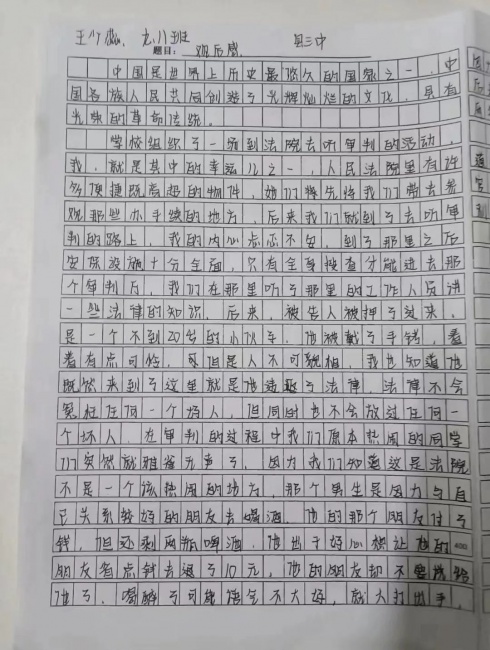 王 九11班 县三中
题目: 观后感
中国是世界上历史最悠久的国家之一,中
国各族人民共同创造了光辉灿烂的文化,具有
光荣的革命传统。
学校组织了一场到法院去听审判的活动,
我,就是其中的幸运儿之一,人民法院里有许
多便捷既高超的物件,她们模先将我们带去参
观那些办手续的地方,后来我们就到了去听审
判的路上,我的内心忐忑不安,到了那里之后
安保设施十分全面,只有全身搜查才能进去那
个审判厅,我们在那里听了那里的工作人员讲
一些法律的知识,后来,被告人被押了过来,
是一个不到20岁的小伙子,他被戴了手铐,看
着有点可怜,可但是人不可貌相,我也知道他
既然来到了这里就是他违反了法律,法律不会
冤枉任何一个好人,但同时也不会放过任何一
个坏人,在审判的过程中我们原本热闹的同学
们突然就雅雀无声了,因为我们知道这是法院
不是一个该热闹的地方,那个男生是因为与自
己关系较好的朋友去喝酒,他的那个朋友付了
钱,但还剩两瓶啤酒,他出于好心想让他的
400
朋友省点钱去退了10元,他的朋友却不要找给
他了,喝醉了可能语气不大好,就大打出手,